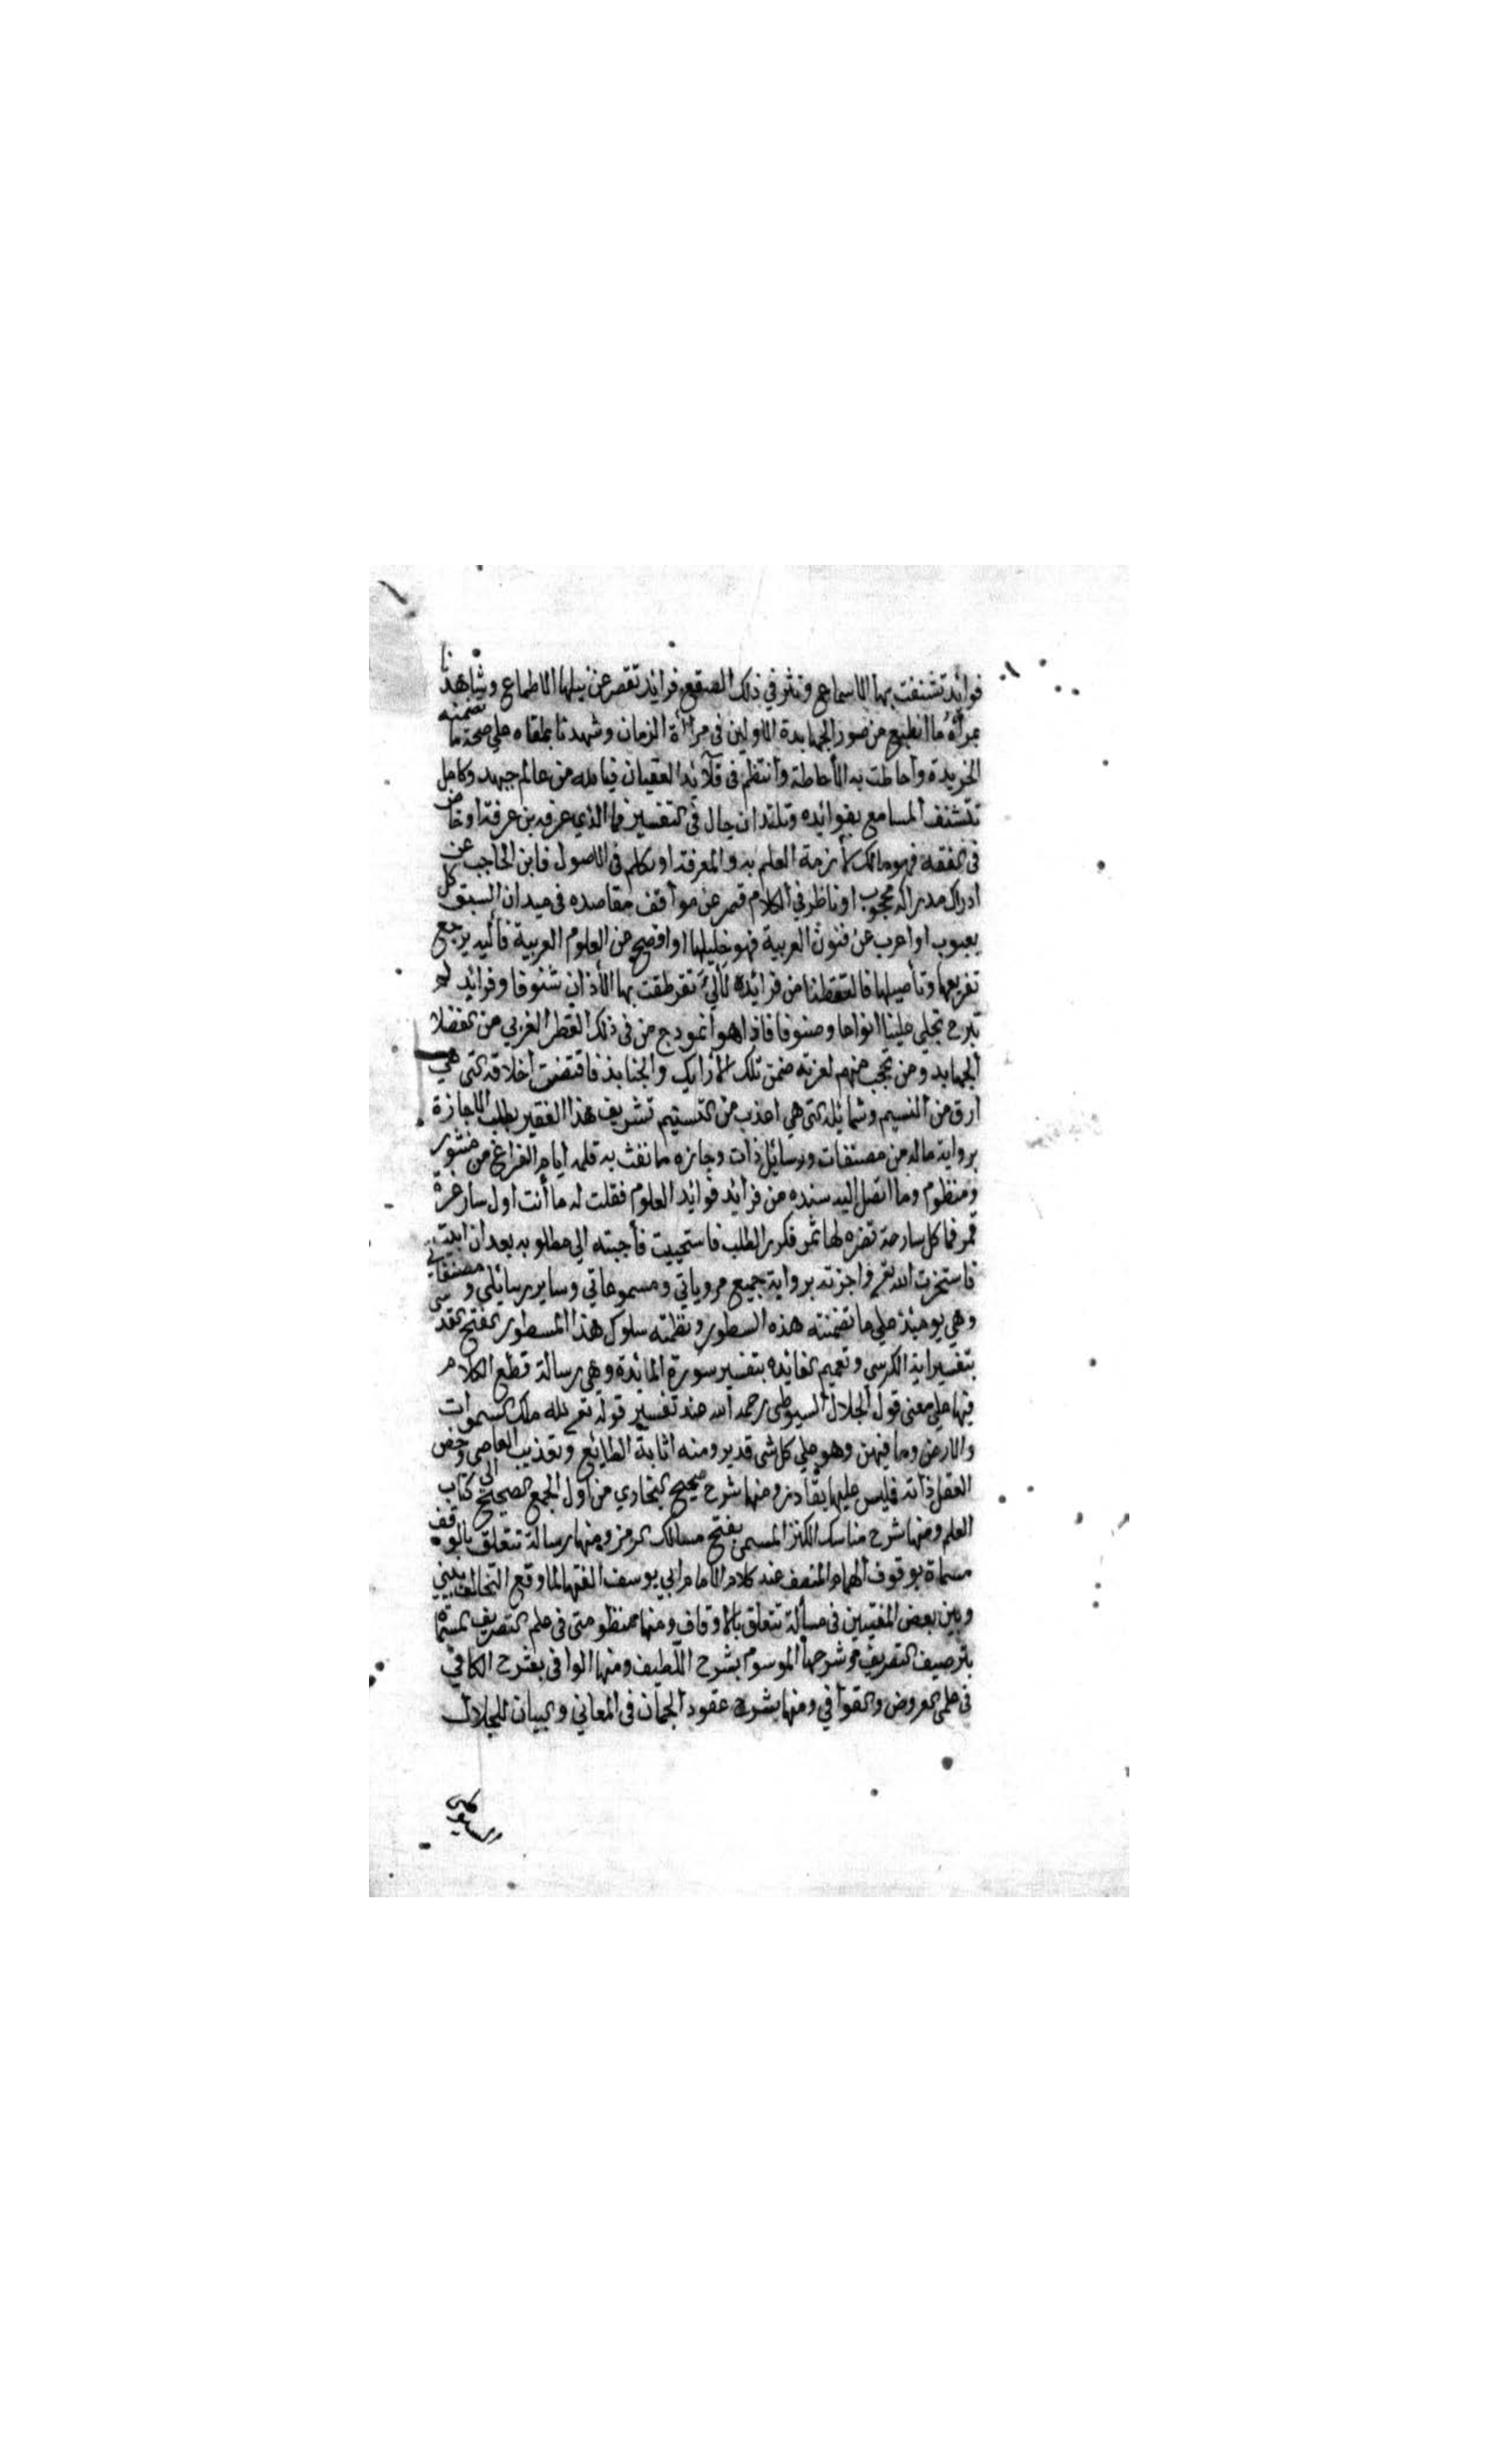 فوائد تشنفت بها الاسماع ونثر في ذلك الصقع فرائد تقصر عن نيلها الاطماع وشاهدنا
بمرآه ما انطبع من صور الجهابدة الاولين فى مرآة الزمان وشهدنا بملقاه على صحة ما تضمنته
الخريدة واحاطت به الأحاطة وانتظم فى قلآئد العقيان فيا لله من عالم جهبد وكامل
تتشنف المسامع بفوائده وتلتذ ان جال فى التفسير فما الذي عرفه بن عرفة او خاض
فى الفقه فهو مالك لأزمة العلم به والمعرفة او تكلم فى الاصول فابن الحاجب عن
ادراك مدركه محجوب او ناظر في الكلام قصر عن مواقف مقاصده فى ميدان السبق كل
يعبوب او اعرب عن فنون العربية فهو خليلها او افصح عن العلوم العربية فأليه يرجع
تفريعها وتأصيلها فالتقطنا من فرائده لآلئ تقرطقت بها الأذان شنوفا وفرائد لم
تبرح تجلي علينا انواعا وصنوفا فاذا هو انموذج من فى ذلك القطر الغربي من الفضلاء
الجهابد ومن تحجب منهم لعزته ضمن تلك الأرايك والجنابذ فاقتضت اخلاقه التى هي
ارق من النسيم وشمائله التى هي اعذب من التسنيم تشريف هذا الفقير بطلب الاجازة
برواية ماله من مصنفات ورسائل ذات وجازه مما نفث به قلمه ايام الفراغ من منثور
ومنظوم وما اتصل اليه سنده من فرائد فوائد العلوم فقلت له ما أنت اول سار غره
قمر فما كل سارحة تضره لها ثم فكرر الطلب فاستحييت فأجبته الي مطلوبه بعد ان ابيت
فاستخرت الله تعم واجزته برواية جميع مروياتي ومسموعاتي وساير رسائلي ومصنفاتي
وهي يومئذ على ما تضمنته هذه السطور ونظمته سلوك هذا المسطور الفتح القدسي
بتفسير اية الكرسي وتعميم الفايده بتفسير سورة المائدة وهى رسالة قطع الكلام
فيها على معنى قول الجلال السيوطى رحمه الله عند تفسير قوله تعم لله ملك السموات
والارض وما فيهن وهو على كل شى قدير ومنه اثابة الطايع وتعذيب العاصي وخص
العقل ذاته فليس عليها بقادر ومنها شرح صحيح البخاري من اول الجمع الصحيح الى كتاب
العلم ومنها شرح مناسك الكنز المسمى بفتح مسالك الرمز ومنها رسالة تتعلق بالوقف
مسماة بوقوف الهمام المنصف عند كلام الامام ابي يوسف الفتها لما وقع التخالف بيني
وبين بعض المفتيين فى مسألة تتعلق بالأوقاف ومنها منظومتى فى علم التصريف المسماة
بترصيف التصريف وشرحها الموسوم بشرح اللطيف ومنها الوافى بشرح الكافي
فى علمي العروض والقوافي ومنها شرح عقود الجمان فى المعاني والبيان للجلال
السيوطي